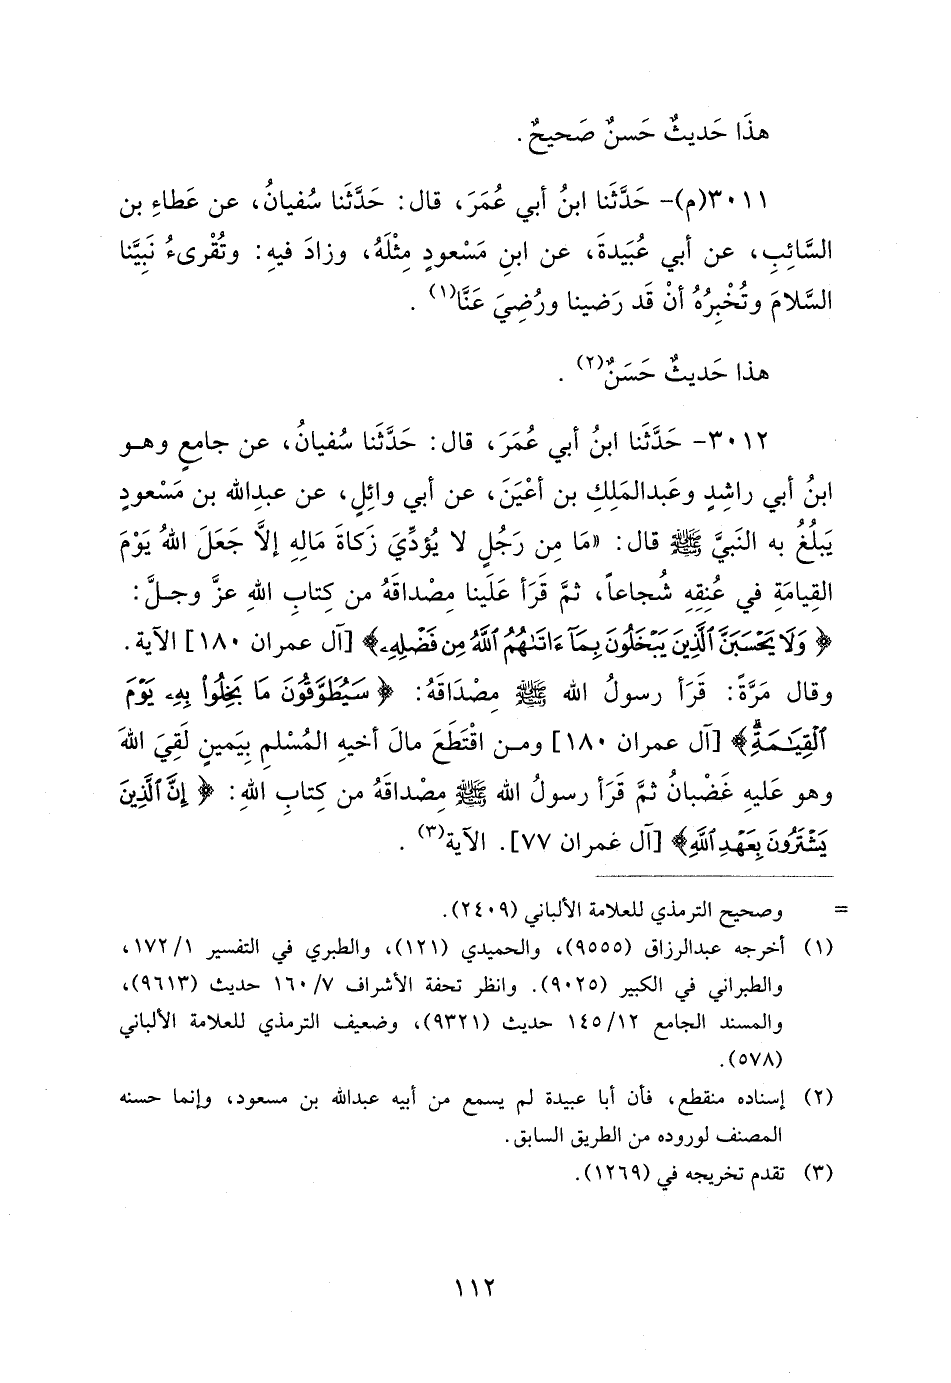 هذَا حَديثٌ حَسنٌ صَحيحٌ .
٣٠١١(م)- حَدَّثَنا ابنُ أبي عُمَرَ، قال: حَدَّثَنا سُفيانُ، عن عَطاءِ بن
السَّائِبِ، عن أبي عُبَيدةَ، عن ابنِ مَسْعودٍ مِثْلَهُ، وزادَ فيهِ: وتُقْرىءُ نَبِيَّنا
السَّلامَ وتُخْبِرُهُ أنْ قَد رَضينا ورُضِيَ عَنَّا(١) .
هذا حَديثٌ حَسَنٌ(٢) .
٣٠١٢- حَدَّثَنا ابنُ أبي عُمَرَ، قال: حَدَّثَنا سُفيانُ، عن جامعٍ وهـو
ابنُ أبي راشِدٍ وعَبدالمَلِكِ بن أعْيَنَ، عن أبي وائِلٍ، عن عبدالله بن مَسْعودٍ
يَبلُغُ به النَبيَّ ﷺ قال: «مَا مِن رَجُلٍ لا يُؤدِّيَ زَكاةَ مَالِهِ إلاَّ جَعَلَ اللهُ يَوْمَ
القِيامَةِ في عُنِقِهِ شُجاعاً، ثمَّ قَرَأ عَلَينا مِصْداقَهُ من كِتابِ اللهِ عزَّ وجـلَّ:
﴿ وَلَا يَحْسَبَنَّ ٱلَّذِينَ يَبْخَلُونَ بِمَآ ءَاتَىٰهُمُ ٱللَّهُ مِن فَضْلِهِۦ﴾ [آل عمران ١٨٠] الآية.
وقال مَرَّةً: قَرَأ رسولُ الله ﷺ مِصْدَاقَهُ: ﴿ سَيُطَوَّقُونَ مَا بَخِلُوا۟ بِهِۦ يَوْمَ
ٱلْقِيَـٰمَةِۗ﴾ [آل عمران ١٨٠] ومـن اقْتَطَعَ مالَ أخيهِ المُسْلمِ بِيَمينٍ لَقِيَ اللهَ
وهو عَليهِ غَضْبانُ ثمَّ قَرَأ رسولُ الله ﷺ مِصْداقَهُ من كِتابِ اللهِ: ﴿ إِنَّ ٱلَّذِينَ
يَشْتَرُونَ بِعَهْدِ ٱللَّهِ﴾ [آل عمران ٧٧]. الآية(٣) .
= وصحيح الترمذي للعلامة الألباني (٢٤٠٩).
(١) أخرجه عبدالرزاق (٩٥٥٥)، والحميدي (١٢١)، والطبري في التفسير ١/ ١٧٢،
والطبراني في الكبير (٩٠٢٥). وانظر تحفة الأشراف ٧/ ١٦٠ حديث (٩٦١٣)،
والمسند الجامع ١٢/ ١٤٥ حديث (٩٣٢١)، وضعيف الترمذي للعلامة الألباني
(٥٧٨).
(٢) إسناده منقطع، فأن أبا عبيدة لم يسمع من أبيه عبدالله بن مسعود، وإنما حسنه
المصنف لوروده من الطريق السابق.
(٣) تقدم تخريجه في (١٢٦٩).
١١٢